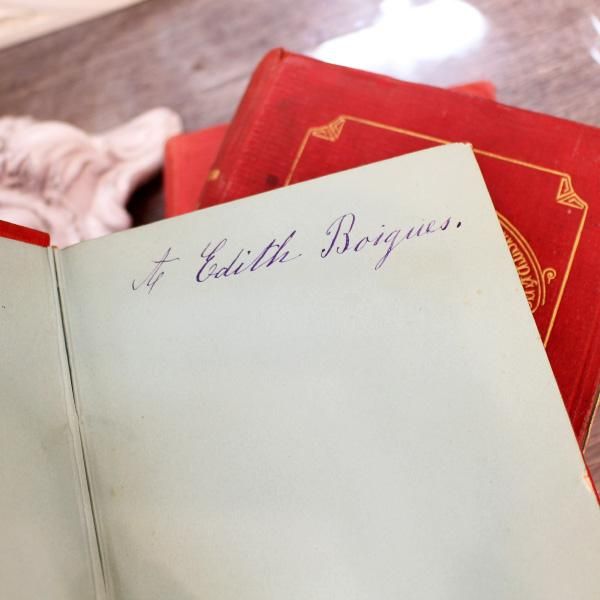 A Edith Boigues.